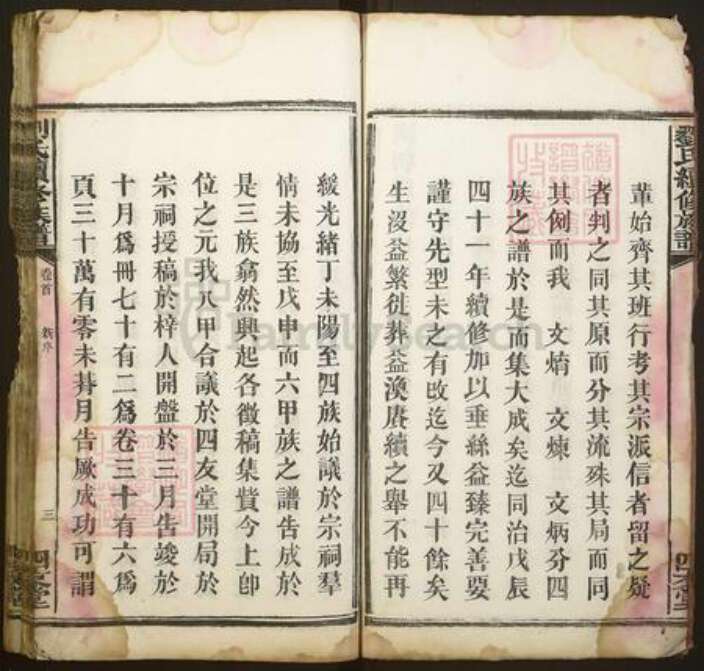 劉氏續修族譜
輩始齊其班行考其宗派信者留之疑
者判之同其原而分其流殊其局而同
其匈而我 文焴 文煉 文炳分四
族之譜於是而集大成矣迄同治戊辰
四十一年續修加以垂絲益臻完善要
謹守先型未之有改迄今又四十餘矣
生沒益繁徙葬益渙賡續之舉不能再
四友堂
緩光緒丁未陽至四族始議於宗祠羣
情未協至戊申而六甲族之譜告成於
是三族翕然興起各徵稿集貲今上卽
位之元我八甲合議於四友堂開局於
宗祠授稿於梓人開盤於三月告竣於
十月爲冊七十有二爲卷三十有六爲
頁三十萬有零未朞月告厥成功可謂
劉氏續修族譜
卷首 新序
三
四友堂
familysea.cn